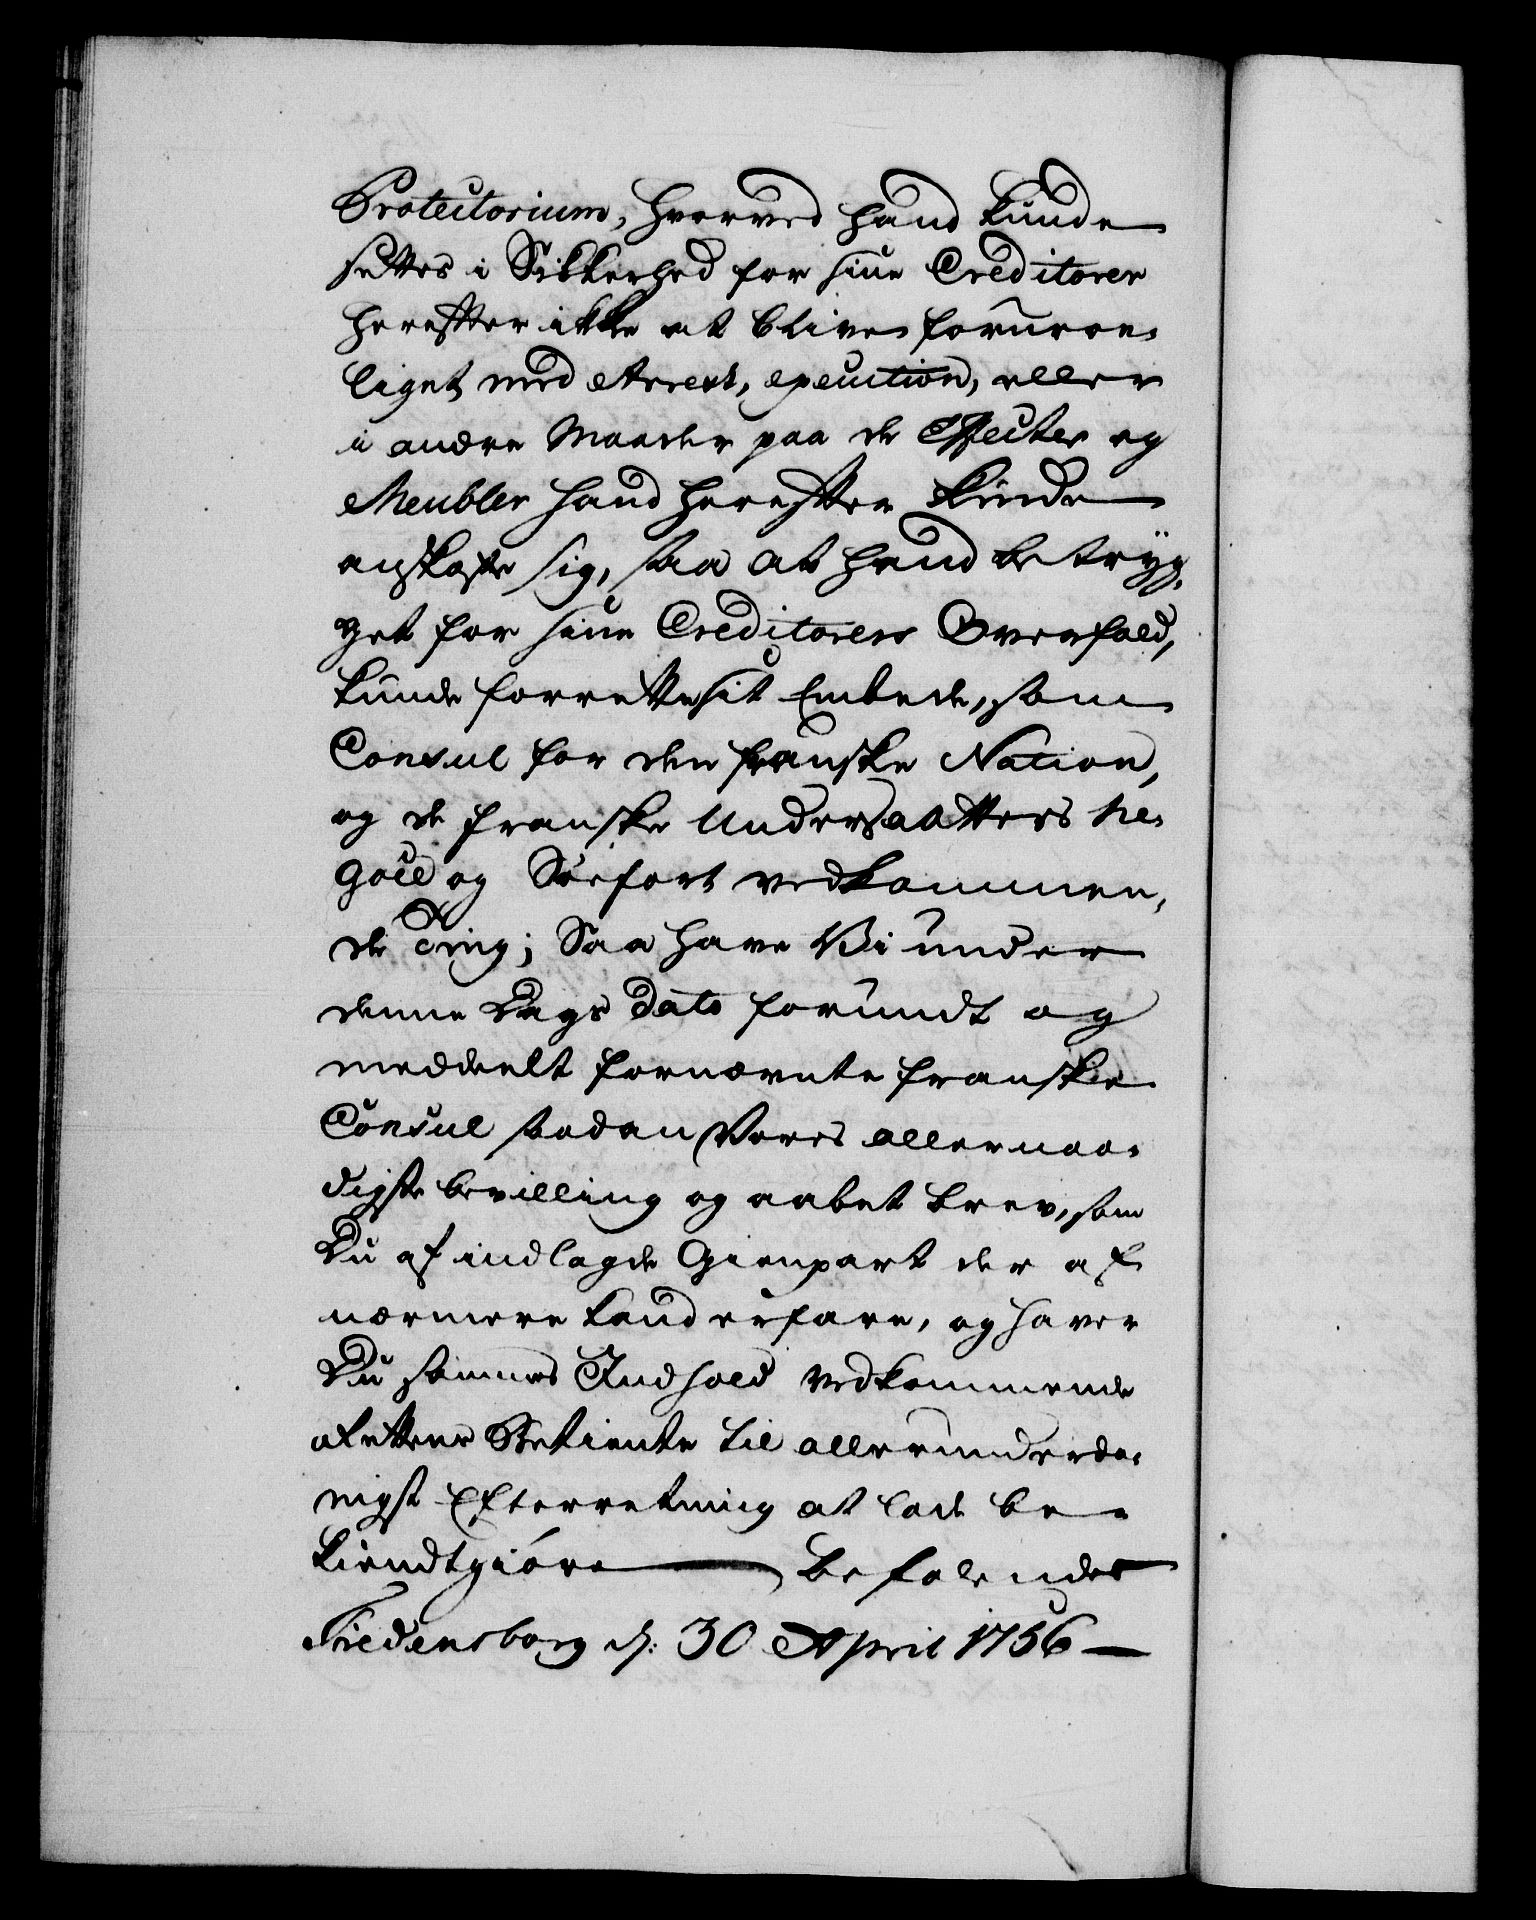 Protectorium, hvorved hand kunde
settes i Sikkerhed for sine Creditorer
herefter ikke at blive foruroe-
liget med Arrest, execution, eller
i andre Maader paa de Effecter og
Meubler hand herefter kunde
anskaffe sig, saa at hand betryg-
get for sine Creditorers Overfald,
kunde forrette sit Embede, som
Consul for den franske Nation,
og de franske Undersaatters ne-
goce og Søefart vedkommen-
de Ting; Saa have Vi under
denne Dags Dato forundt og
meddeelt fornævnte franske
Consul saadan Vores allernaa-
digste bevilling og aabet brev, som
Du af indlagde Gienpart der af
nærmere kand erfare, og haver
Du sammes Indhold vedkommende
Rettens Betiente til allerunderda-
nigst Efterretning at lade be-
kiendtgiøre befalendes
Fredensborg d: 30 April 1756